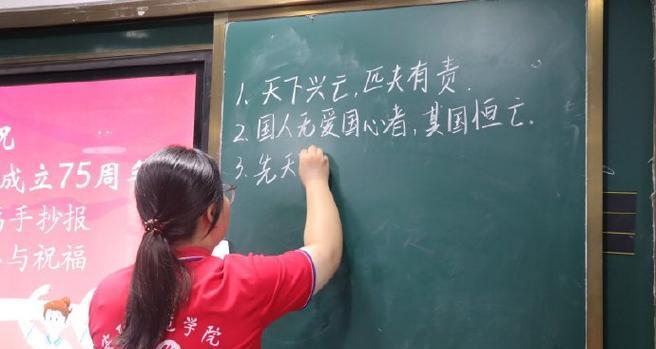 1. 天下兴亡,匹夫有责.
2. 国人无爱国心者,其国恒亡.
3. 先天
祝
成立75周年
手抄报
与祝福
学院